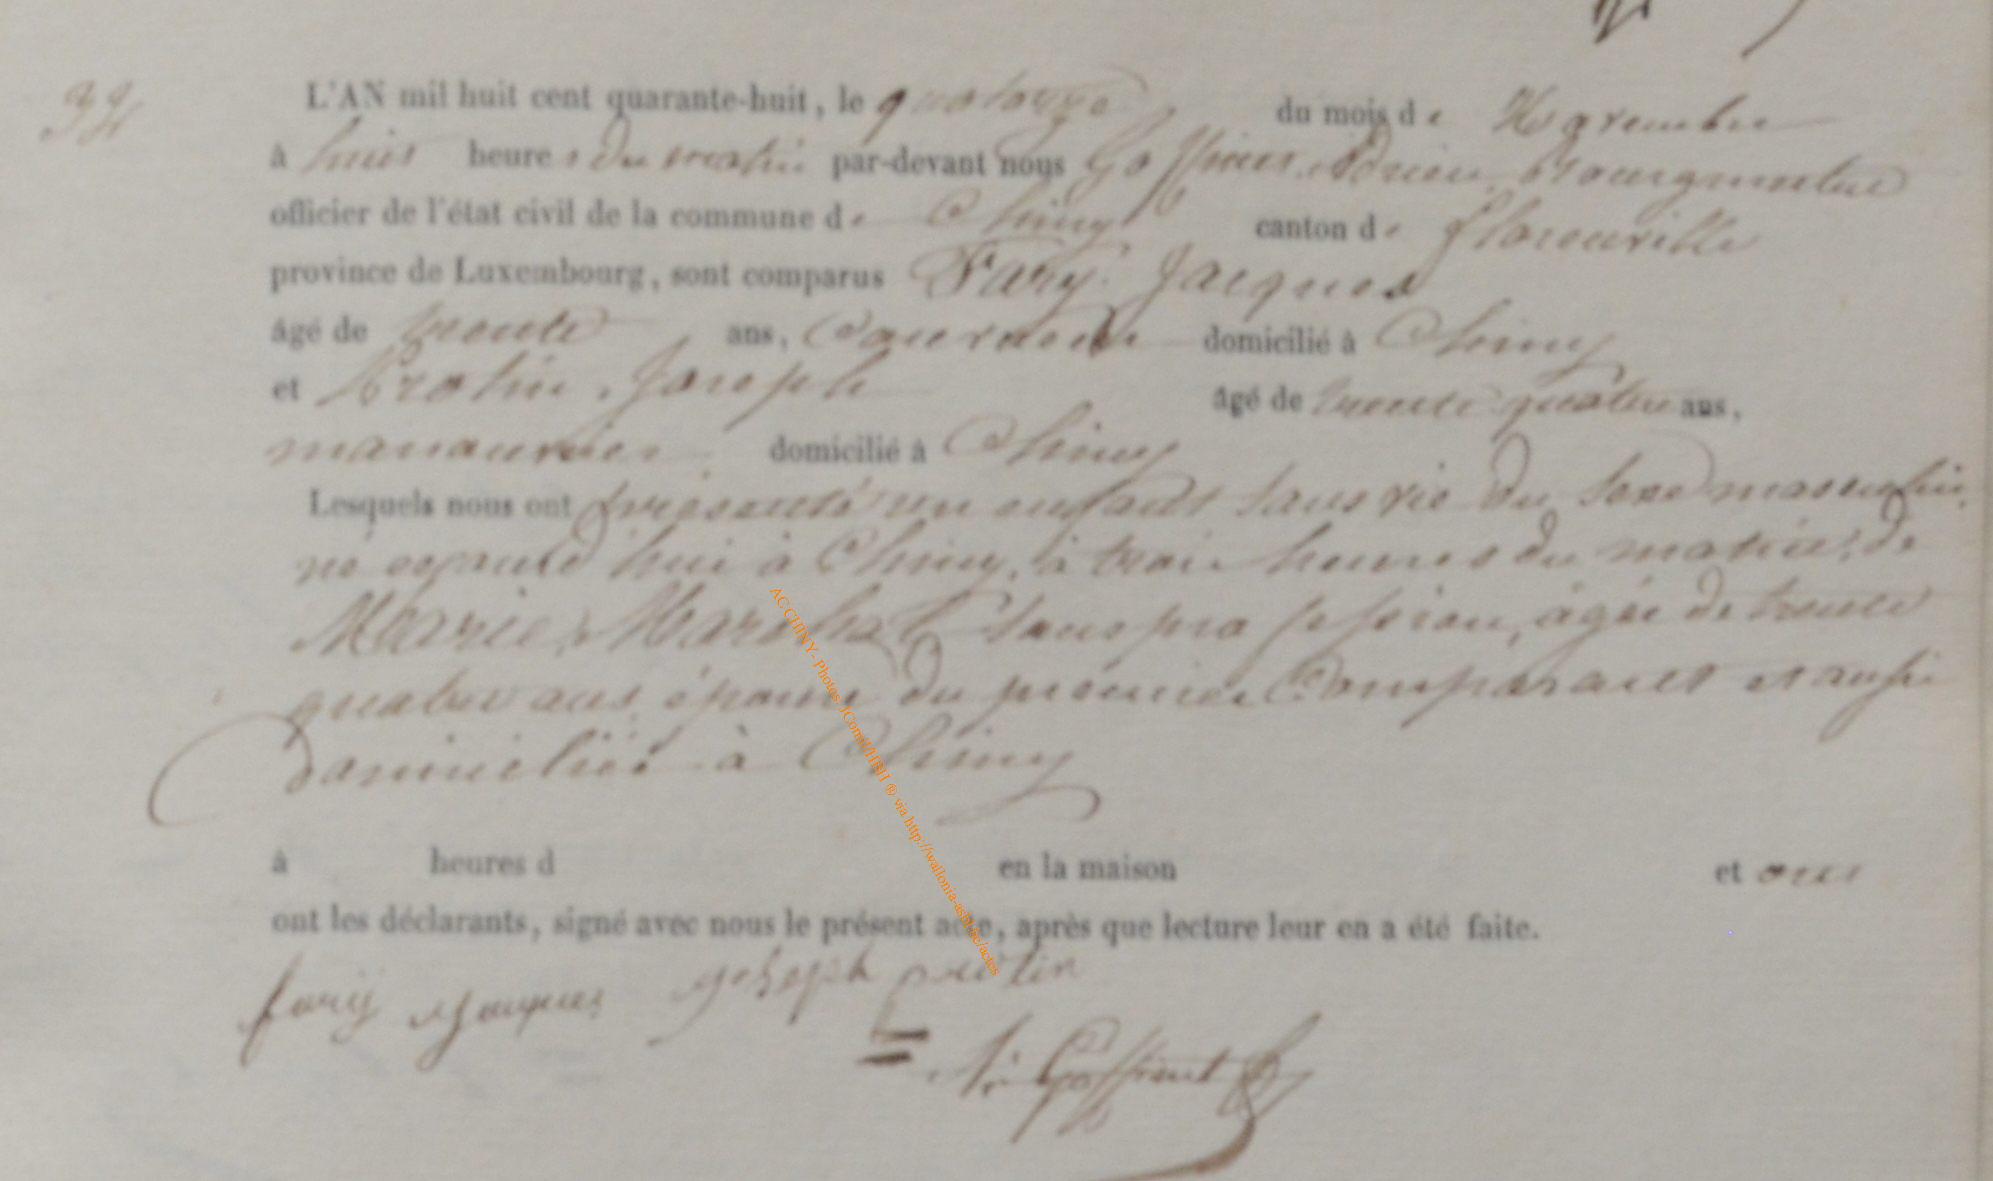 34
L'AN mil huit cent quarante-huit, le quatorze du mois de Novembre
à huit heures du matin par-devant nous Goffinet Adrien, Bourgmestre
officier de l'état civil de la commune de Chiny canton de florenville
province de Luxembourg, sont comparus Fary Jacques
âgé de trente ans, domicilié à Chiny
et Protin, Joseph âgé de trente quatre ans,
manouvrier domicilié à Chiny
Lesquels nous ont présenté un enfant sans vie du sexe masculin,
né aujourd'hui à Chiny, à trois heures du matin, de
Marie Marchal sans profession, âgée de trente
quatre ans, épouse du premier Comparant et aussi
domiciliée à Chiny
à heures d en la maison et ont
ont les déclarants, signé avec nous le présent acte, après que lecture leur en a été faite.
fary Jacques joseph protin
A. Goffinet
AC CHINY- Photos via http://wallonia-asbl.be/actes